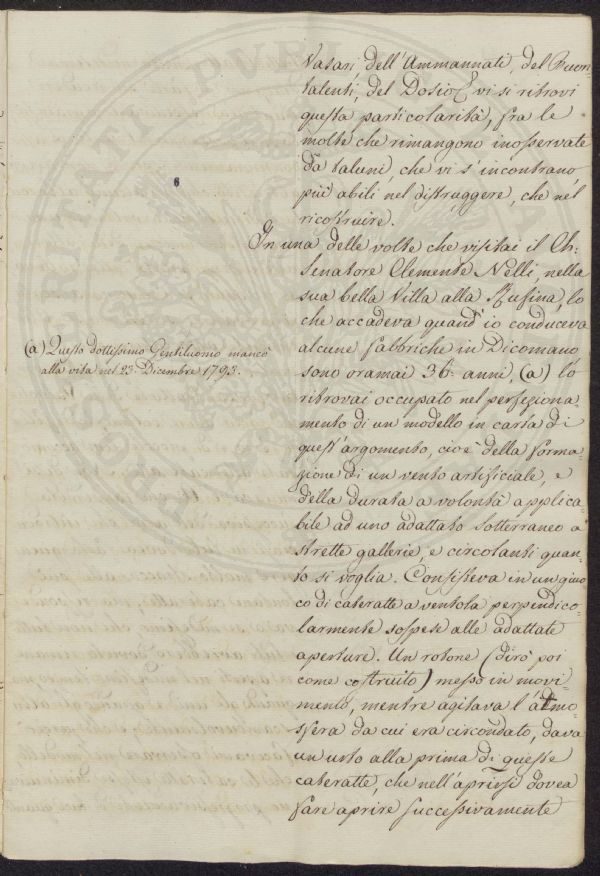 Vasari, dell'Ammannati, del Buon-
talenti, del Dosio, vi si ritrovi
questa particolarità, fra le
molte che rimangono inosservate
da taluni, che vi s'incontrano
più abili nel distruggere, che nel
ricostruire.
In una delle volte che visitai il Ch:
Senatore Clemente Nelli, nella
sua bella Villa alla Rufina, lo
che accadeva quand'io conduceva
alcune fabbriche in Dicomano,
sono oramai 36. anni, (a) lo
ritrovai occupato nel perfeziona-
mento di un modello in carta di
quest'argomento, cioè della forma-
zione di un vento artificiale, e
della durata a volontà applica-
bile ad uno adattato sotterraneo a
strette gallerie, e circolanti quan-
to si voglia. Consisteva in un giuo-
co di cateratte a ventola perpendico-
larmente sospese alle adattate
aperture. Un rotone (dirò poi
come costruito) messo in movi-
mento, mentre agitava l'atmo-
sfera da cui era circondato, dava
un urto alla prima di queste
cateratte, che nell'aprirsi dovea
fare aprire successivamente
(a) Questo dottissimo Gentiluomo mancò
alla vita nel 23 Dicembre 1793.